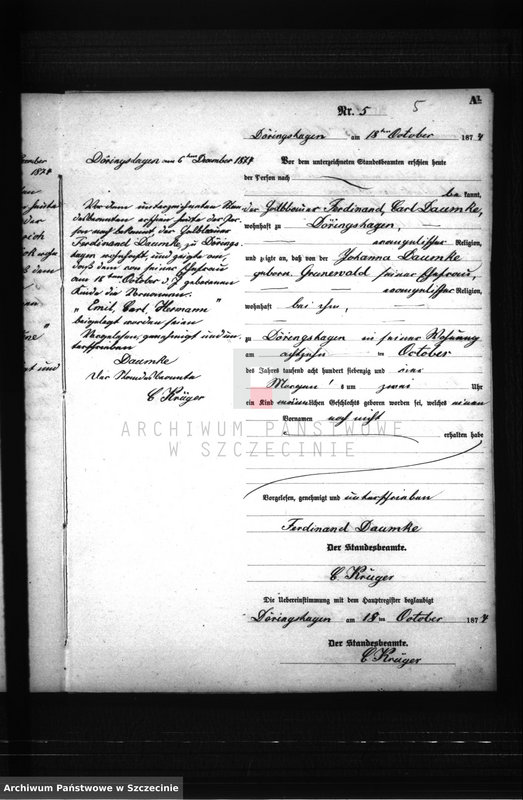 A1.
Nr. 5
5
Döringshagen am 18ten October 1874
Vor dem unterzeichneten Standesbeamten erschien heute
der Person nach
be kannt,
der Halbbauer Ferdinand, Carl Daumke,
wohnhaft zu Döringshagen,
evangelischer Religion,
und zeigte an, daß von der Johanna Daumke
geborn. Grunewald seiner Ehefrau,
evangelischer Religion,
wohnhaft bei ihm,
zu Döringshagen in seiner Wohnung
am achtzehn ten October
des Jahres tausend acht hundert siebenzig und vier
Morgens um zwei Uhr
ein Kind männlichen Geschlechts geboren worden sei, welches einen
Vornamen noch nicht
erhalten habe
Vorgelesen, genehmigt und unterschrieben
Ferdinand Daumke
Der Standesbeamte.
C. Krüger
Die Uebereinstimmung mit dem Hauptregister beglaubigt
Döringshagen am 18ten October 1874
Der Standesbeamte.
C Krüger
Döringshagen am 6ten December 1874
Vor dem unterzeichneten Stan
desbeamten erschien heute der Per
son nach bekannt der Halbbauer
Ferdinand Daumke, zu Dörings
hagen wohnhaft, und zeigte an,
daß dem von seiner Ehefrau
am 18ten October d. J. geborenen
Kinde die Vornamen:
"Emil, Carl, Hermann"
beigelegt worden seien
Vorgelesen, genehmigt und un
terschrieben
Daumke
Der Standesbeamte
C Krüger
ARCHIWUM PAŃSTWOWE
W SZCZECINIE
Archiwum Państwowe w Szczecinie